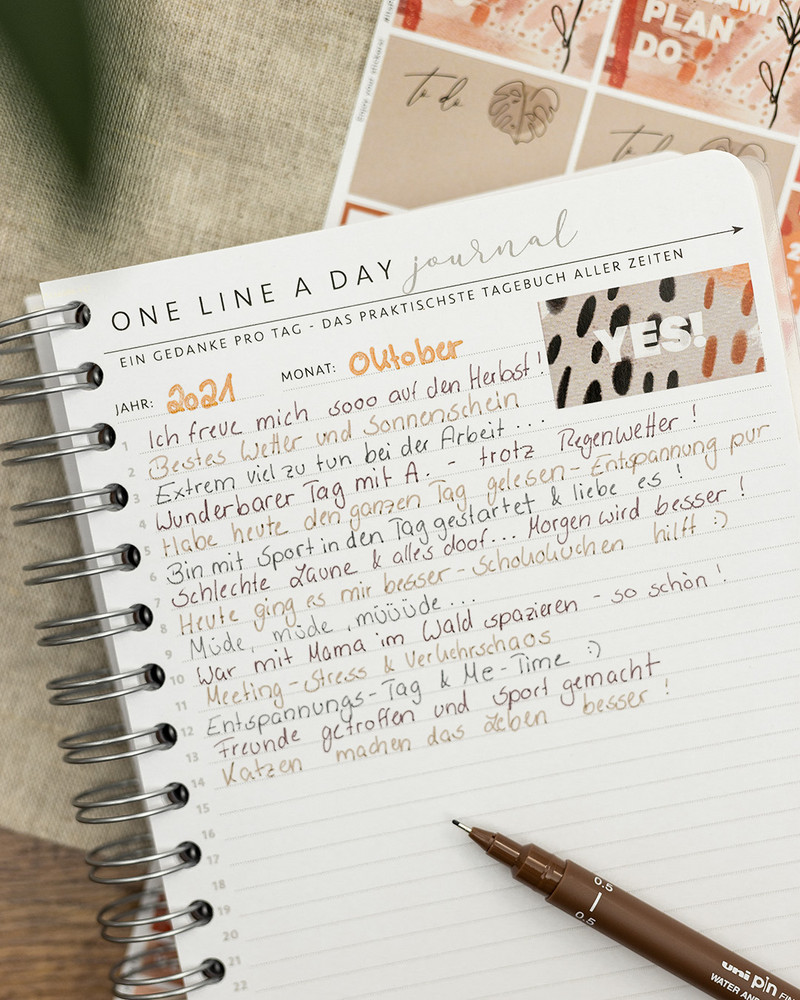 PLAN
DO
to do
to do
ONE LINE A DAY journal
EIN GEDANKE PRO TAG - DAS PRAKTISCHSTE TAGEBUCH ALLER ZEITEN
YES!
JAHR: 2021 MONAT: Oktober
1 Ich freue mich sooo auf den Herbst!
2 Bestes Wetter und Sonnenschein
3 Extrem viel zu tun bei der Arbeit...
4 Wunderbarer Tag mit A. - trotz Regenwetter!
5 Habe heute den ganzen Tag gelesen - Entspannung pur
6 Bin mit Sport in den Tag gestartet & liebe es!
7 Schlechte Laune & alles doof... Morgen wird besser!
8 Heute ging es mir besser - Schokokuchen hilft :)
9 Müde, müde, müüüde...
10 War mit Mama im Wald spazieren - so schön!
11 Meeting-Stress & Verkehrschaos
12 Entspannungs-Tag & Me-Time :)
13 Freunde getroffen und Sport gemacht
14 Katzen machen das Leben besser!
15
16
17
18
19
20
21
22
0.5
0.5
uni pin FIN
WATER AND